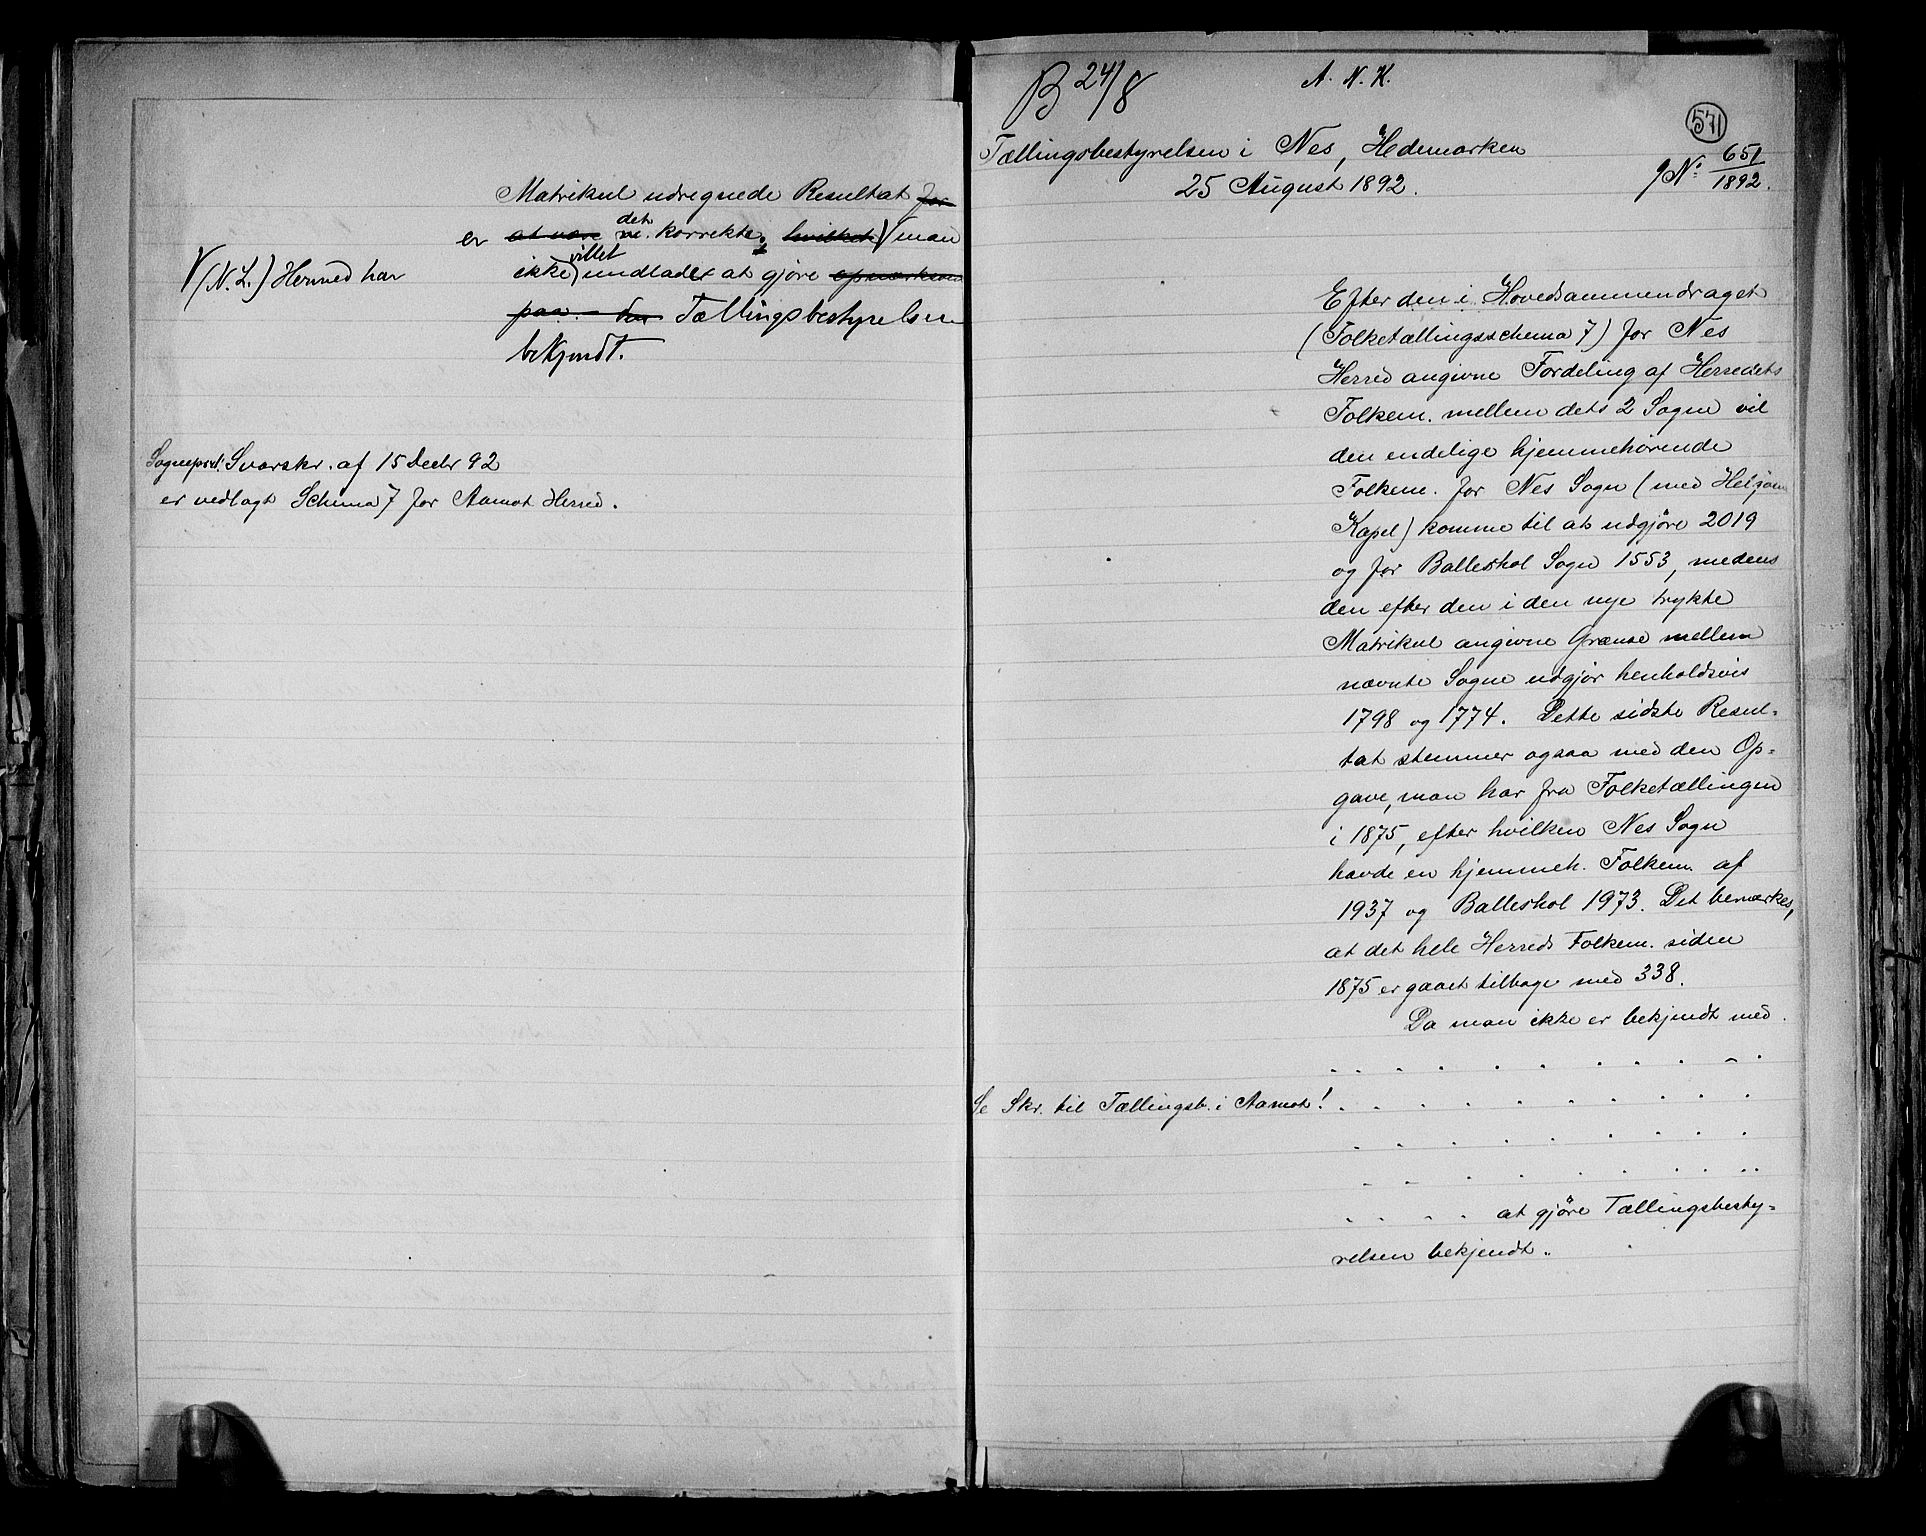 Matrikul udregnede Resultat for
er at være det korrekte, hvilket √ man
√ (N. L.) Hermed har
ikke villet undladet at gjøre opmærksom
paa – den Tællingsbestyrelsen
bekjendt.
Sognepr. Svarskr. af 15 Decbr 92
er vedlagt Schema 7 for Aamot Herred.
B 24/8
A. N. K.
571
Tællingsbestyrelsen i Nes, Hedemarken
25 August 1892.
J N: 651/1892.
Efter den i Hovedsammendraget
(Folketællingsschema 7) for Nes
Herred angivne Fordeling af Herredets
Folkem. mellem dets 2 Sogne vil
den endelige hjemmehørende
Folkem. for Nes Sogn (med Helgøens
Kapel) komme til at udgjøre 2019
og for Balleshol Sogn 1553, medens
den efter den i den nye trykte
Matrikul angivne Grænse mellem
nævnte Sogne udgjør henholdsvis
1798 og 1774. Dette sidste Resul-
tat stemmer ogsaa med den Op-
gave, man har fra Folketællingen
i 1875, efter hvilken Nes Sogn
havde en hjemmeh. Folkem. af
1937 og Balleshol 1973. Det bemærkes,
at det hele Herreds Folkem. siden
1875 er gaaet tilbage med 338.
Da man ikke er bekjendt med
Se Skr. til Tællingsb. i Aamot!
at gjøre Tællingsbesty-
relsen bekjendt.